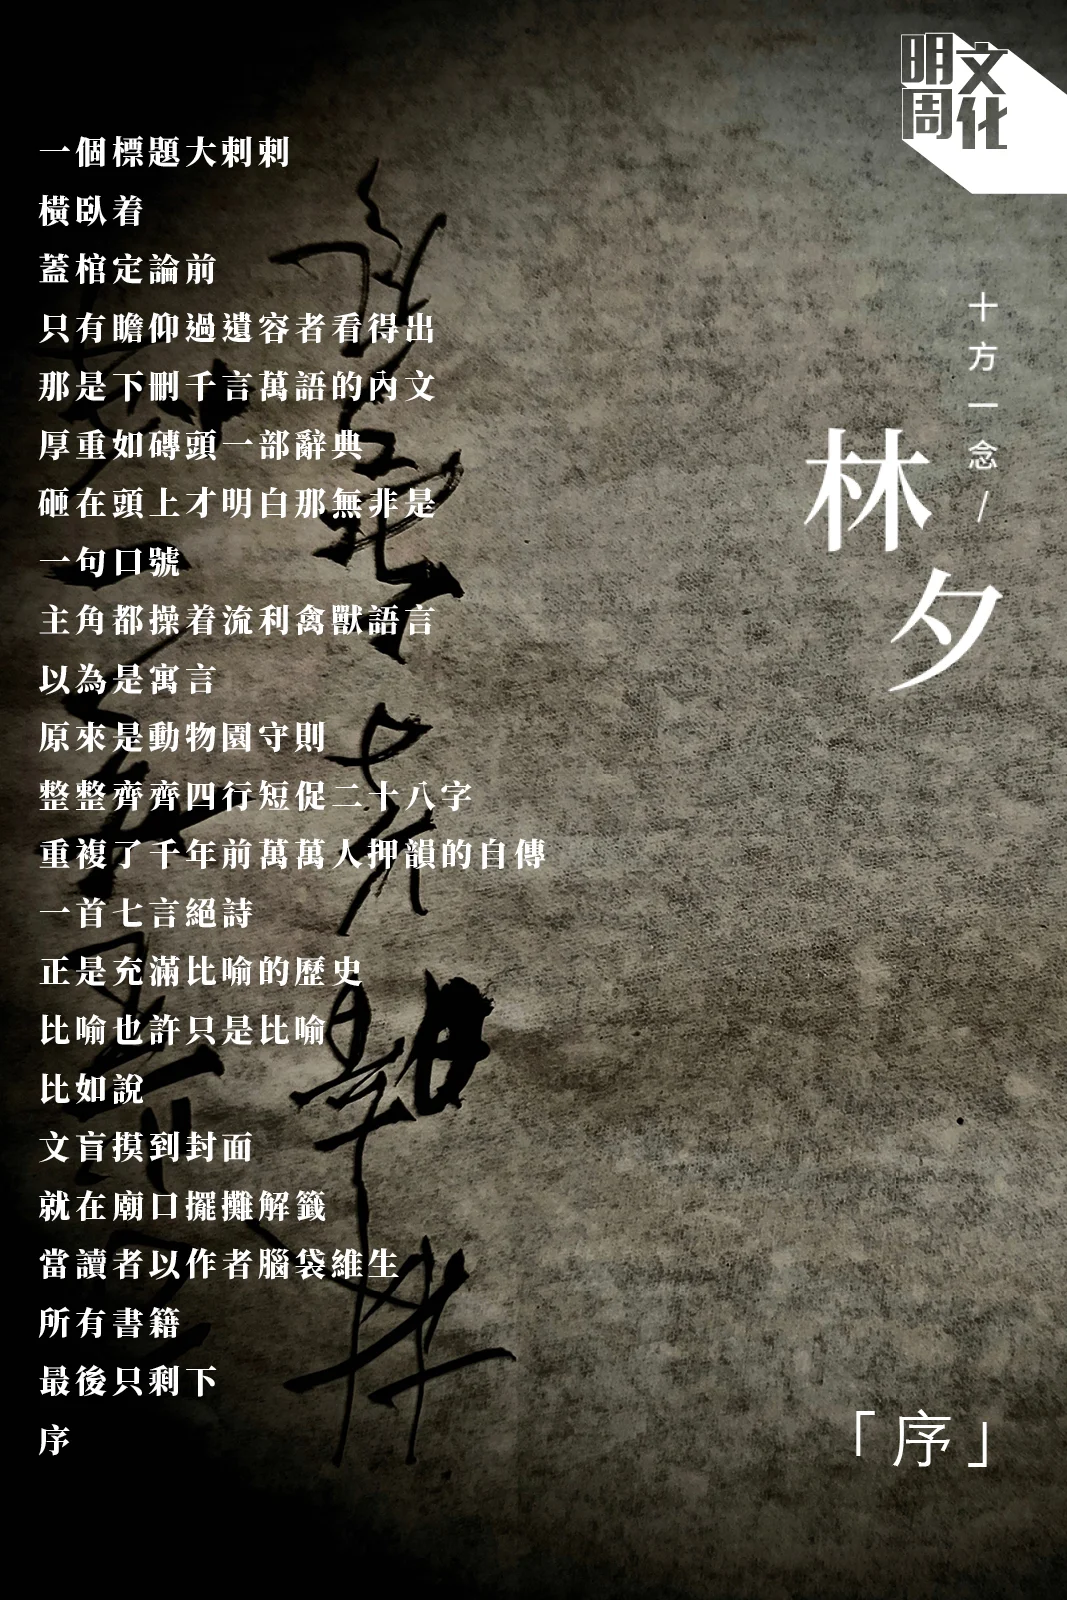 明周文化
十方一念/
林夕
「序」
一個標題大剌剌
橫臥着
蓋棺定論前
只有瞻仰過遺容者看得出
那是下刪千言萬語的內文
厚重如磚頭一部辭典
砸在頭上才明白那無非是
一句口號
主角都操着流利禽獸語言
以為是寓言
原來是動物園守則
整整齊齊四行短促二十八字
重複了千年前萬萬人押韻的自傳
一首七言絕詩
正是充滿比喻的歷史
比喻也許只是比喻
比如說
文盲摸到封面
就在廟口擺攤解籤
當讀者以作者腦袋維生
所有書籍
最後只剩下
序